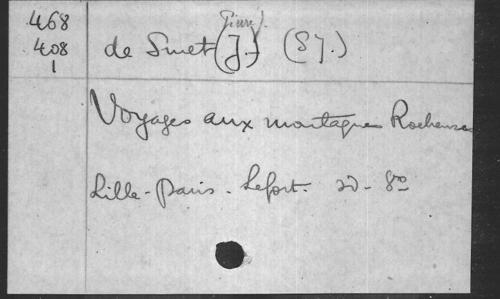 468
408
1
de Smet (J.) (SJ.)
Voyages aux montagnes Rocheuses
Lille - Paris - Lefort. sd - 8º